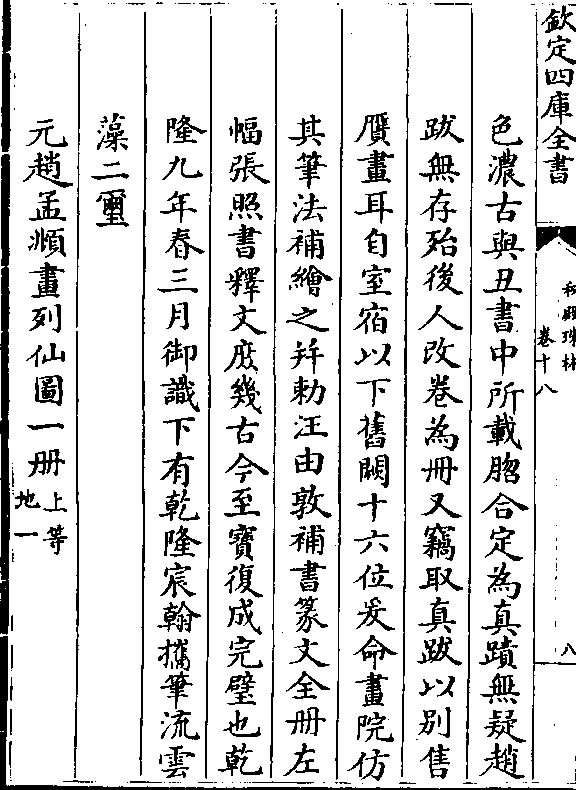 欽定四庫全書
秘殿珠林
卷十八
八
色濃古與丑書中所載脗合定為真蹟無疑趙
跋無存殆後人改卷為冊又竊取真跋以别售
贋畫耳自室宿以下舊闕十六位爰命畫院仿
其筆法補繪之并勅汪由敦補書篆文全冊左
幅張照書釋文庻幾古今至寶復成完璧也乾
隆九年春三月御識下有乾隆宸翰攡筆流雲
藻二璽
元趙孟頫畫列仙圖一冊上等
地一